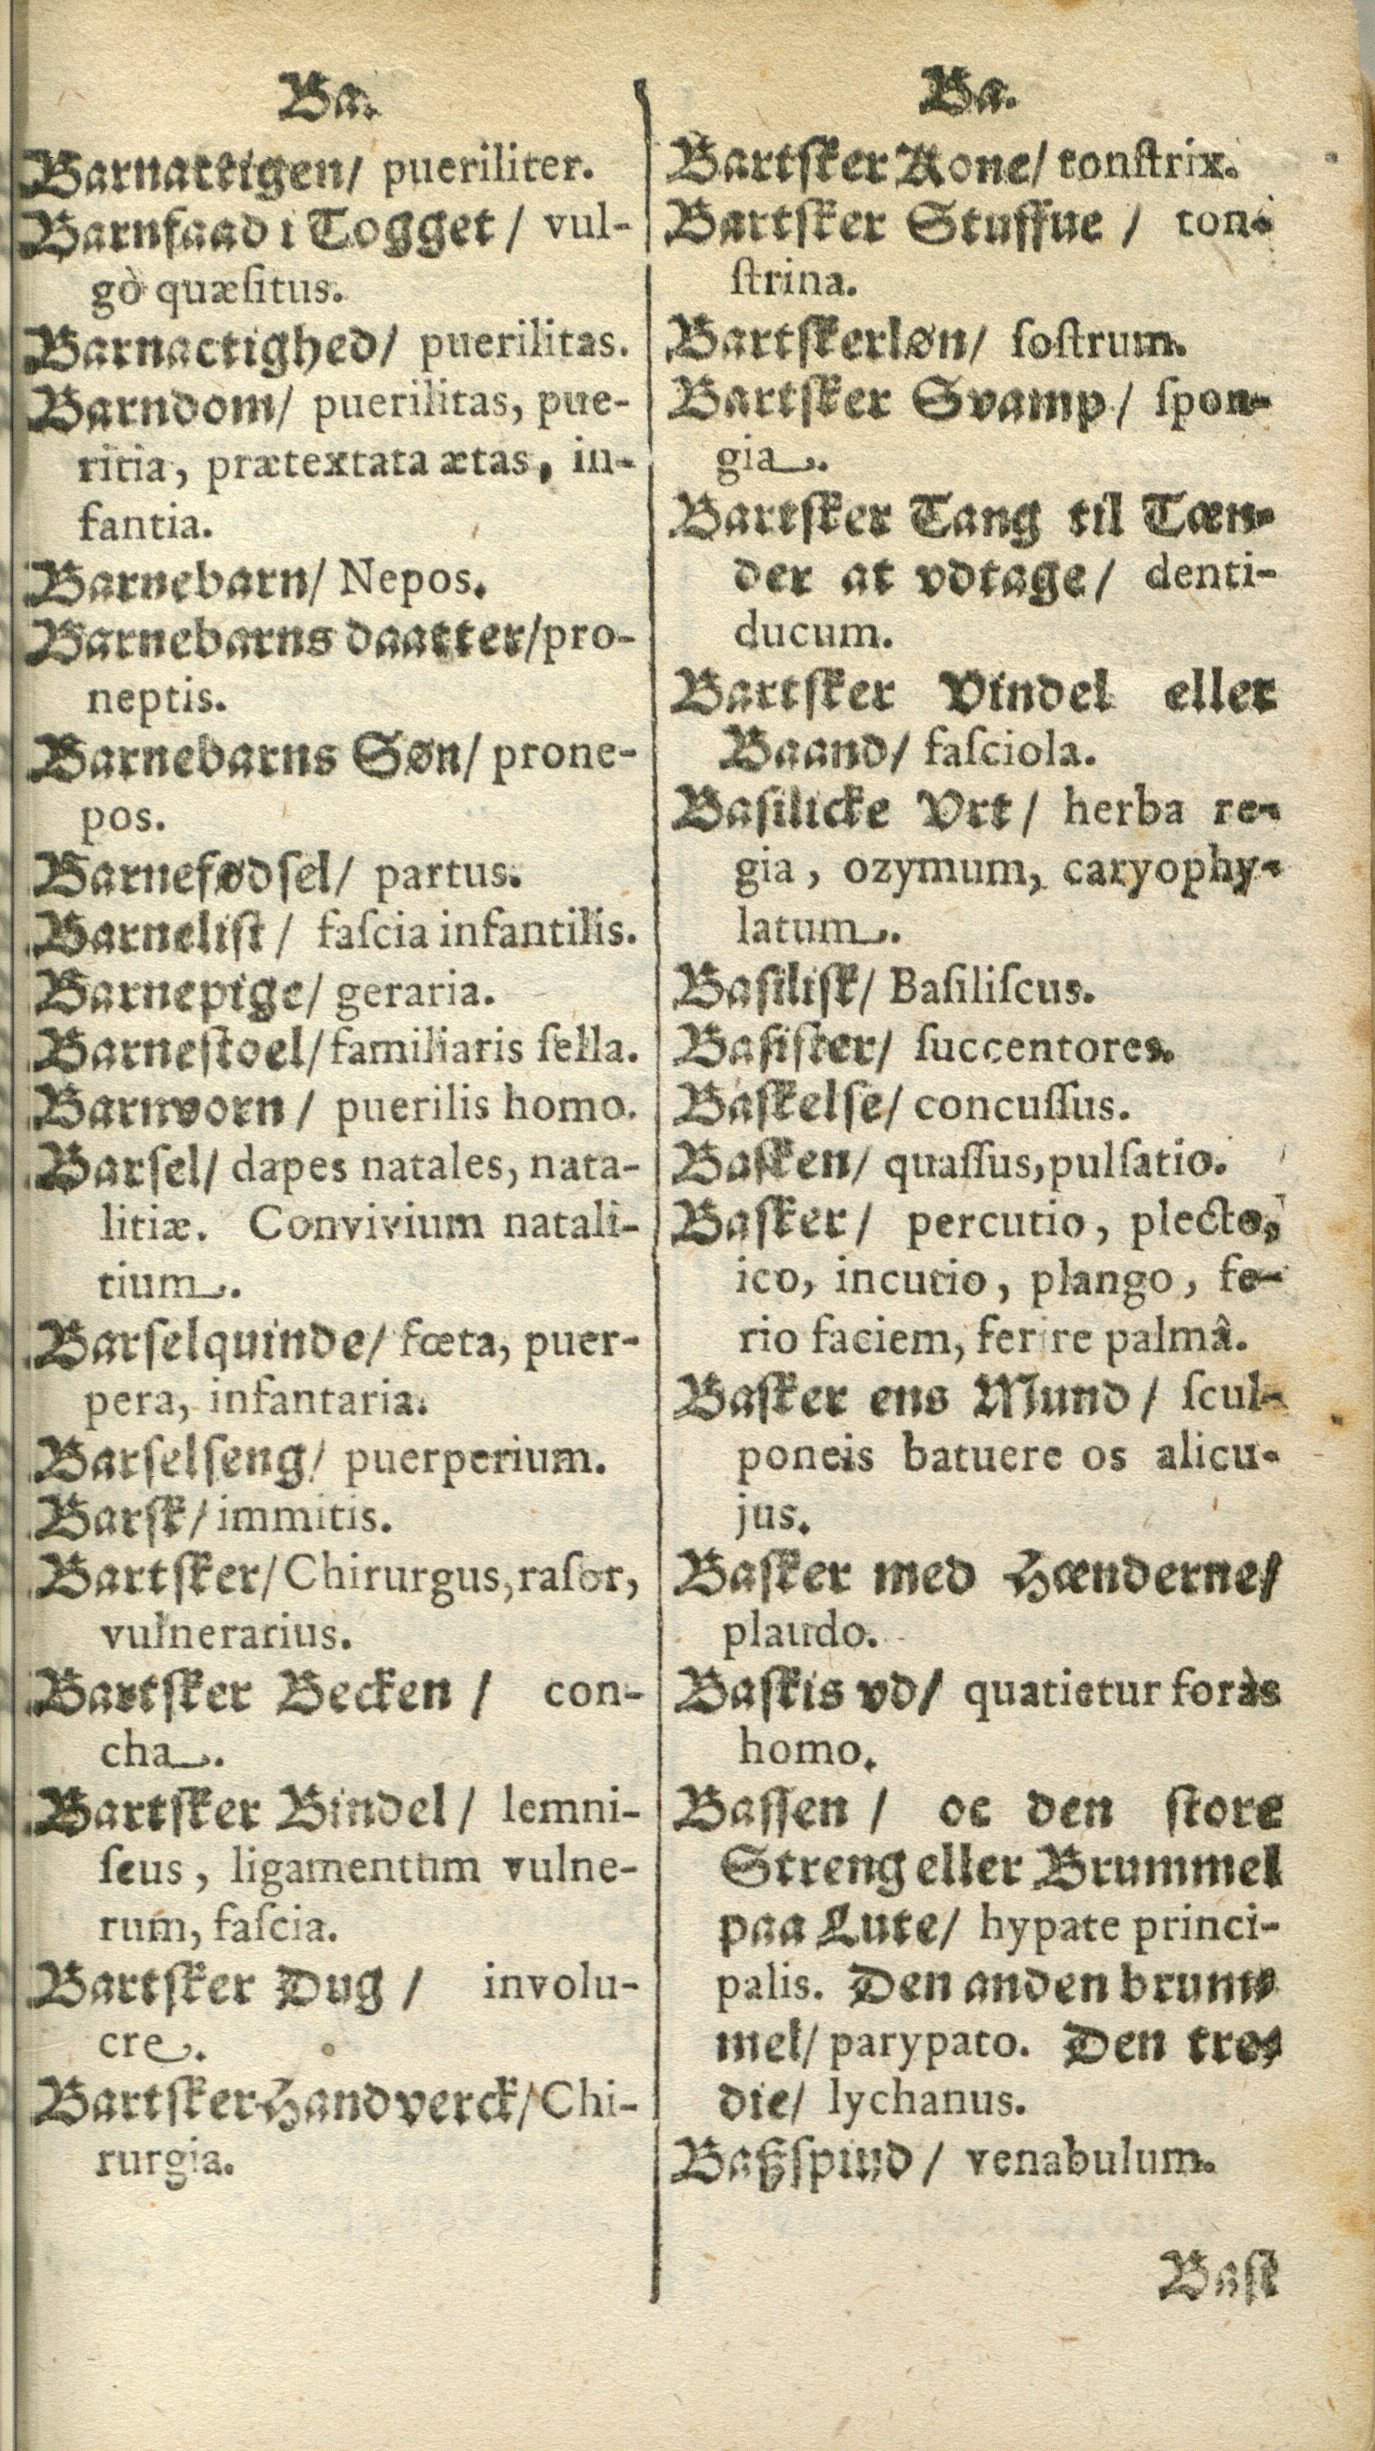 Ba.
Barnactigen/ pueriliter.
Barnfaad i Togget / vul-
gò quæſitus.
Barnactighed/ puerilitas.
Barndom/ puerilitas, pue-
ritia, prætextata ætas, in-
fantia.
Barnebarn/ Nepos.
Barnebarns daatter/pro-
neptis.
Barnebarns Søn/ prone-
pos.
Barnefødſel/ partus.
Barneliſt / faſcia infantilis.
Barnepige/ geraria.
Barneſtoel/familiaris ſella.
Barnvorn / puerilis homo.
Barſel/ dapes natales, nata-
litiæ. Convivium natali-
tium.
Barſelquinde/ fœta, puer-
pera, infantaria.
Barſelſeng/ puerperium.
Barſk/immitis.
Bartſker/Chirurgus,raſor,
vulnerarius.
Bartſker Becken / con-
cha.
Bartſker Bindel/ lemni-
ſcus, ligamentum vulne-
rum, faſcia.
Bartſker Dug / involu-
cre.
Bartſker Handverck/Chi-
rurgia.
Ba.
Bartſker Kone/ tonſtrix.
Bartſker Stuffue / ton-
ſtrina.
Bartſkerløn/ ſoſtrum.
Bartſker Svamp/ ſpon-
gia.
Bartſker Tang til Tæn-
der at vdtage/ denti-
ducum.
Bartſker Vindel eller
Baand/ faſciola.
Baſilicke Vrt/ herba re-
gia, ozymum, caryophy-
latum.
Baſiliſk/ Baſiliſcus.
Baſiſter/ ſuccentores.
Baſkelſe/ concuſſus.
Baſken/ quaſſus,pulſatio.
Baſker/ percutio, plecto,
ico, incutio, plango, fe-
rio faciem, ferire palmâ.
Baſker ens Mund/ ſcul-
poneis batuere os alicu-
jus.
Baſker med Hænderne/
plaudo.
Baſkis vd/ quatietur foràs
homo.
Baſſen / oc den ſtore
Streng eller Brummel
paa Lute/ hypate princi-
palis. Den anden brum-
mel/ parypato. Den tre-
die/ lychanus.
Baßſpiud/ venabulum.
Baſk